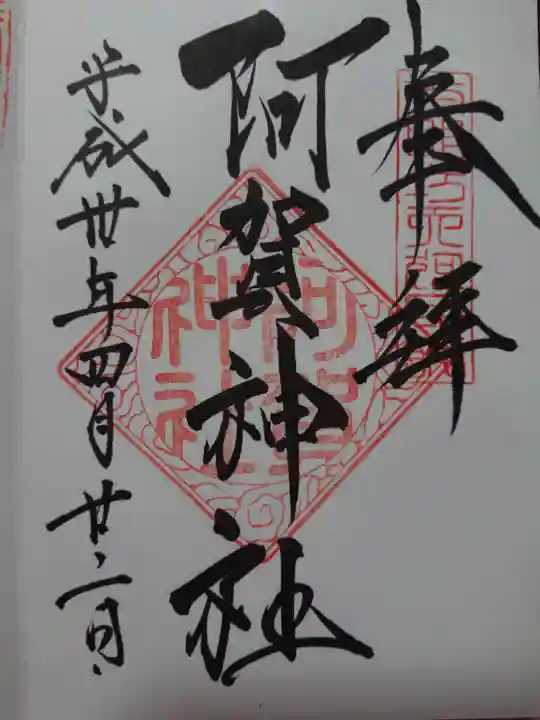 奉拝
阿賀神社
阿賀神社
平成卅年四月廿二日